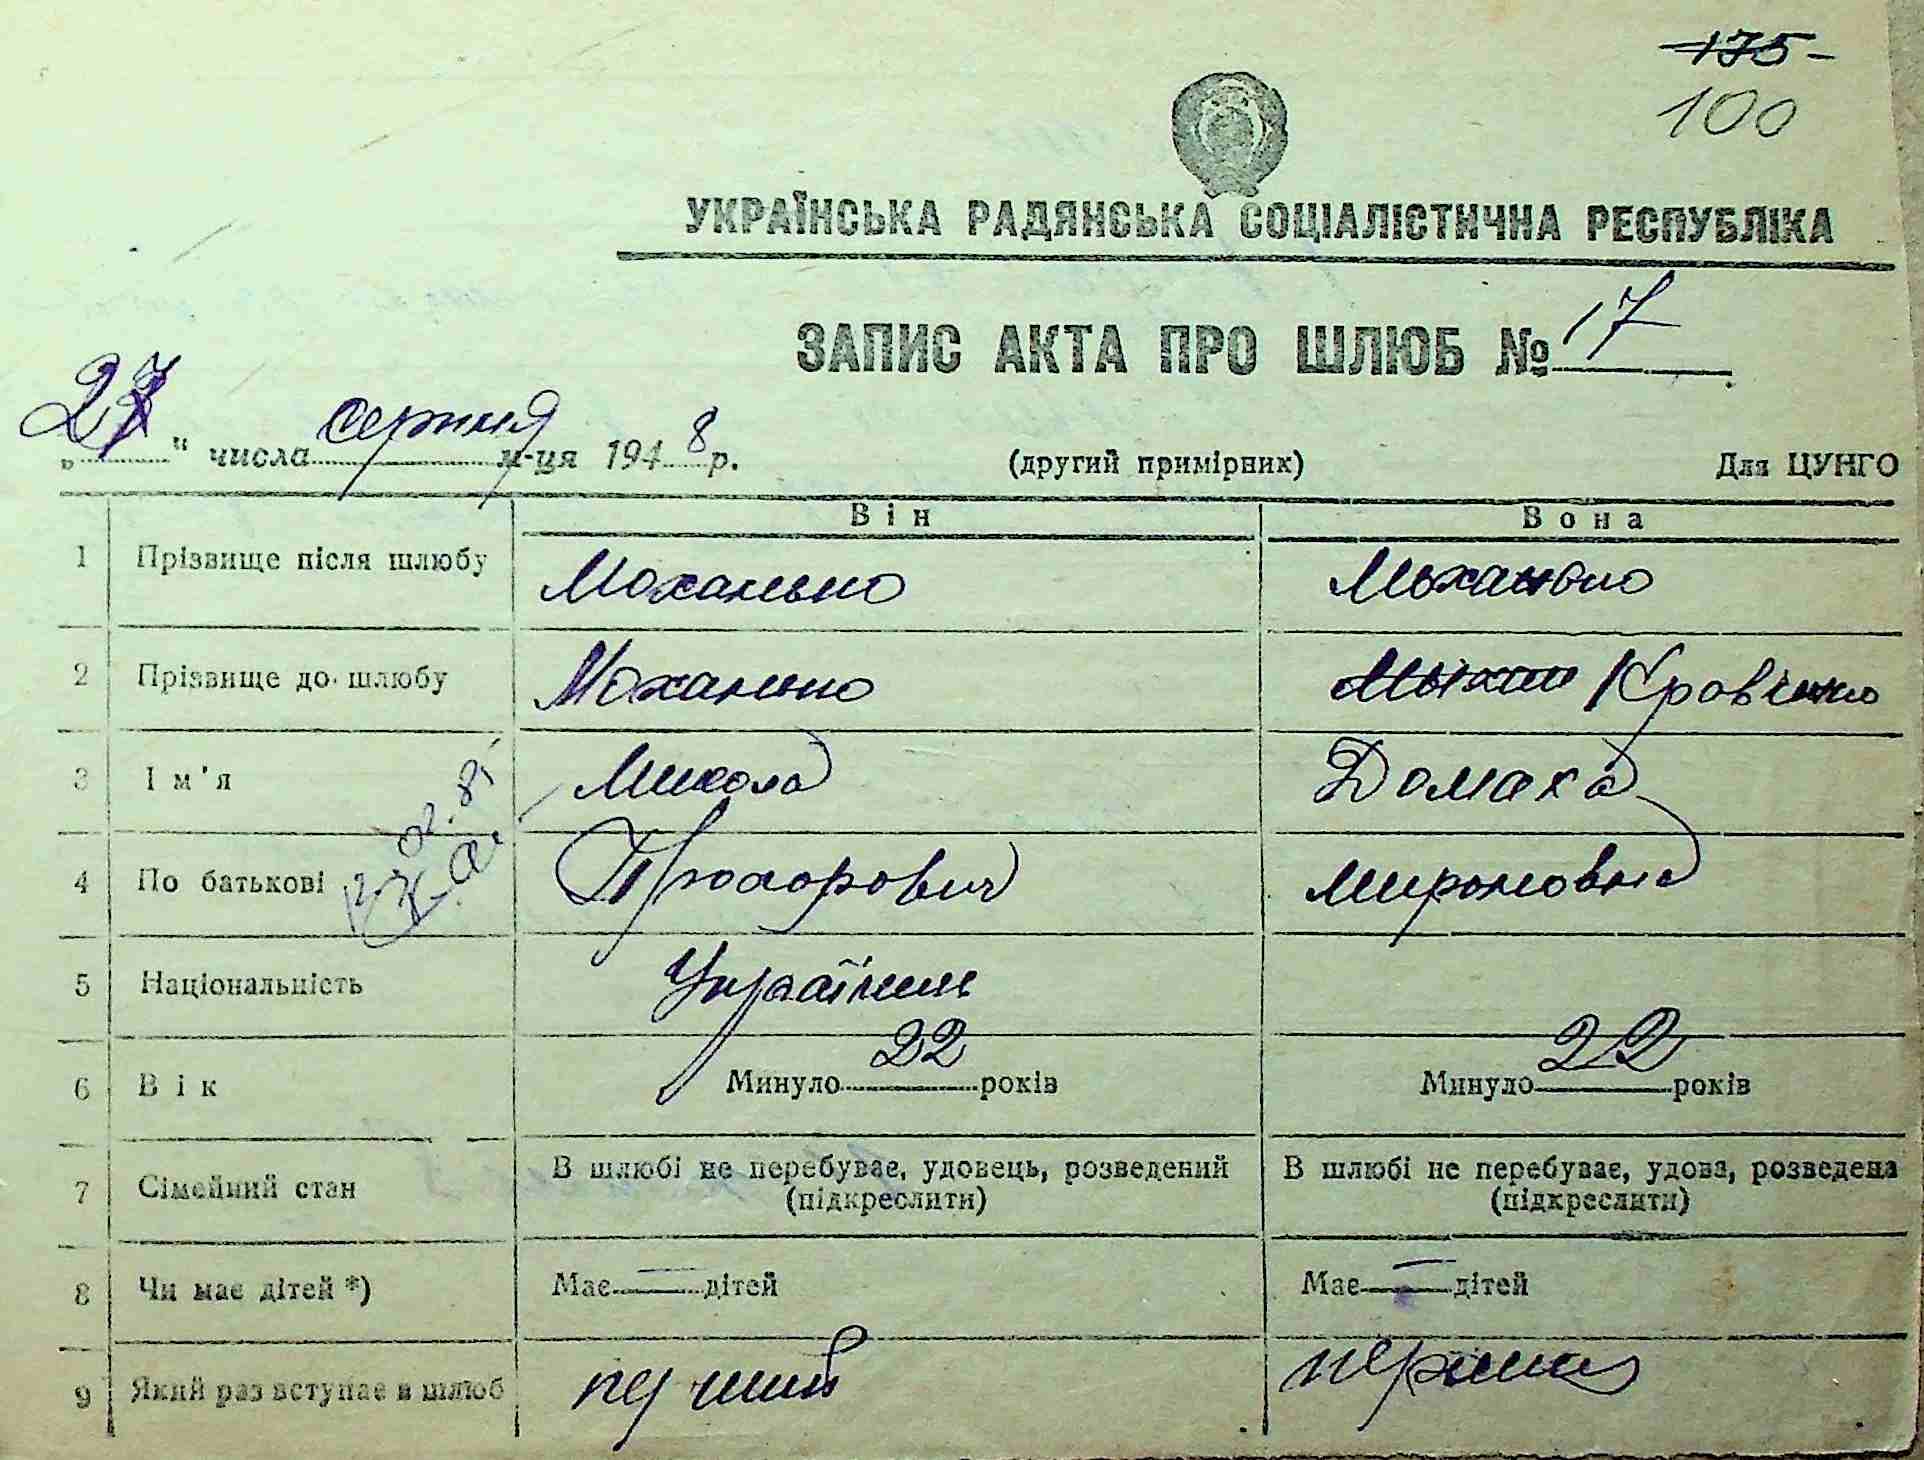 175
100
УКРАЇНСЬКА РАДЯНСЬКА СОЦІАЛІСТИЧНА РЕСПУБЛІКА
ЗАПИС АКТА ПРО ШЛЮБ № 17
„27" числа серпня м-ця 1948 р. (другий примірник) Для ЦУНГО
Він Вона
1 Прізвище після шлюбу Моханько Моханько
2 Прізвище до шлюбу Моханько Кровінко
3 Ім'я Микола Домаха
4 По батькові Прохорович Мироновна
5 Національність Українець
6 Вік Минуло 22 років Минуло 22 років
7 Сімейний стан В шлюбі не перебуває, удовець, розведений (підкреслити) В шлюбі не перебуває, удова, розведена (підкреслити)
8 Чи має дітей *) Має — дітей Має — дітей
9 Який раз вступає в шлюб перший перший